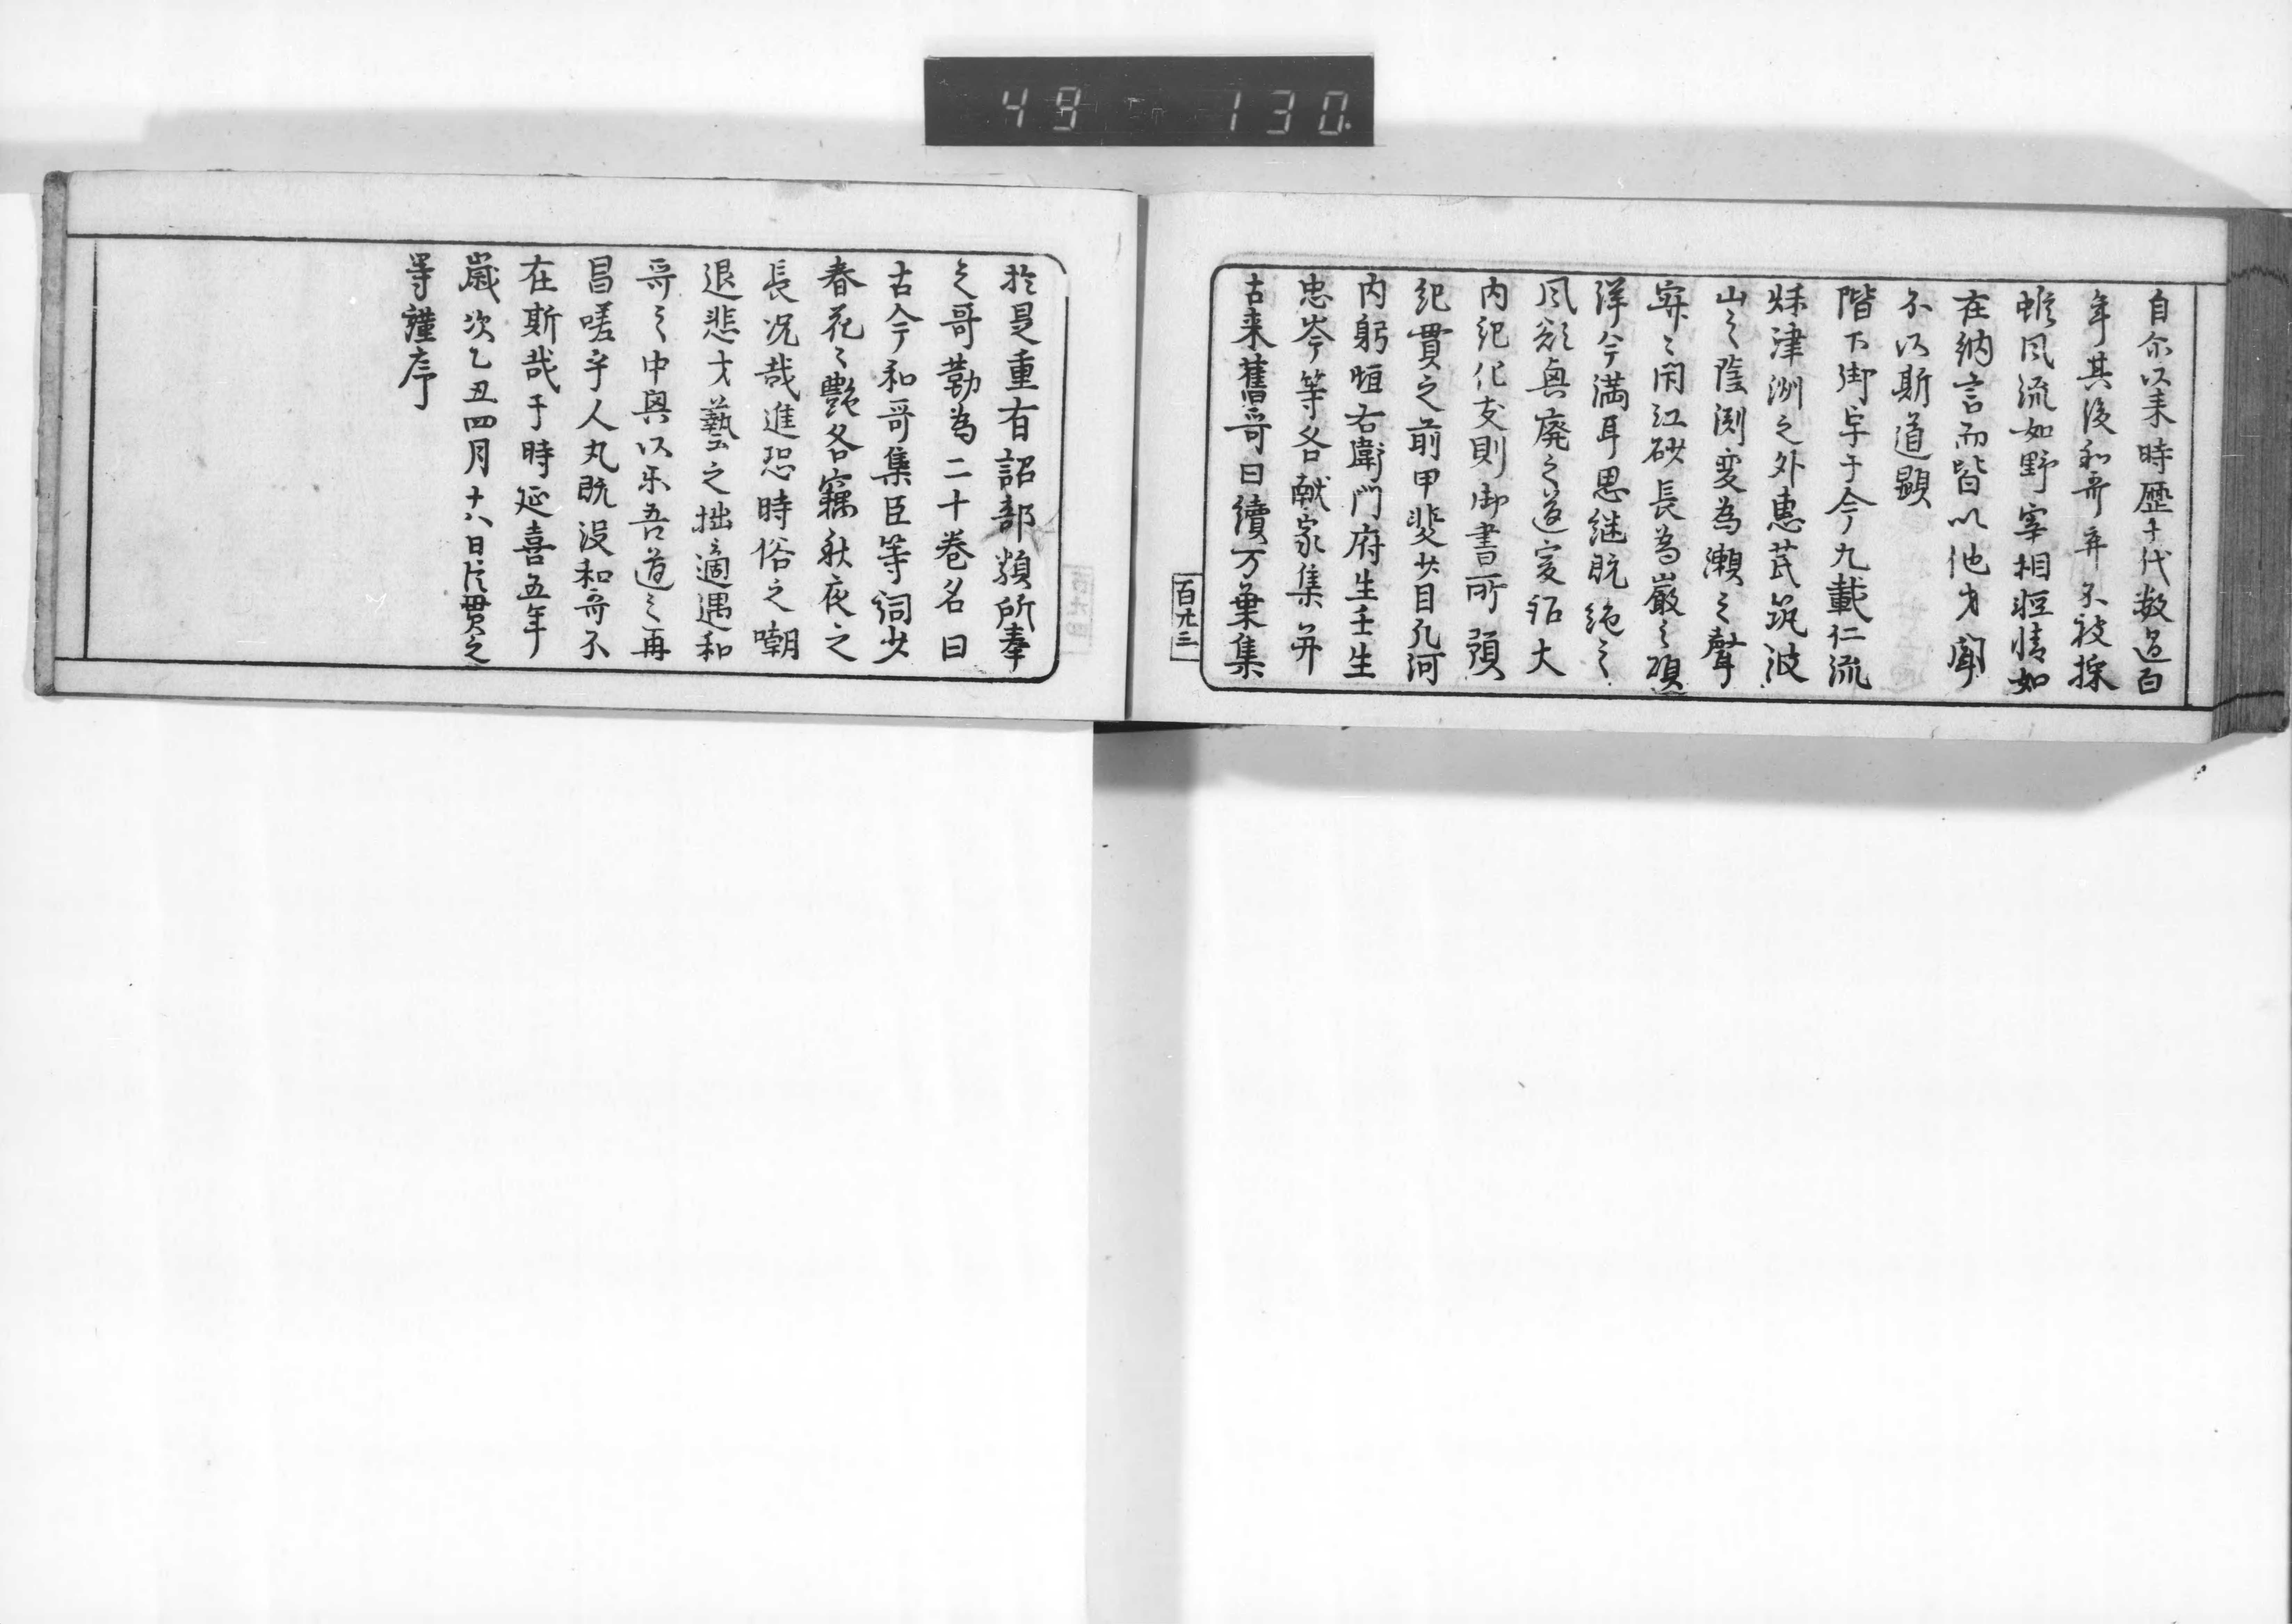 49 130
自尓以来時歴十代数過百
年其後和哥弃不被採
雖風流如野宰相軽情如
在納言而皆以他才聞
不以斯道顕
陛下御宇于今九載仁流
秋津洲之外惠茂筑波
山之陰渕変為瀬之聲
寂々閇江砂長為巌之頌
洋々満耳思継既絶之
風欲興廃之道爰詔大
内記紀友則御書所預
紀貫之前甲斐少目凡河
内躬恒右衛門府生壬生
忠岑等各献家集并
古来舊哥曰續万葉集
百九三
於是重有詔部類所奉
之哥勒為二十巻名曰
古今和哥集臣等詞少
春花之艶名竊秋夜之
長况哉進恐時俗之嘲
退悲才藝之拙適遇和
哥之中興以樂吾道之再
昌嗟乎人丸既没和哥不
在斯哉于時延喜五年
歳次乙丑四月十八日臣貫之
等謹序